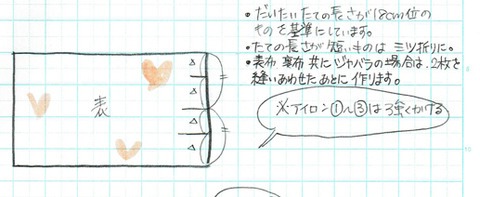 ・だいたい たての長さが18cm位の
ものを基準にしています。
・たての長さが短いものは 三ツ折りに。
・表布 裏布 共に ジャバラの場合は、2枚を
縫いあわせたあとに作ります。
表
※アイロン①〜③は強くかける